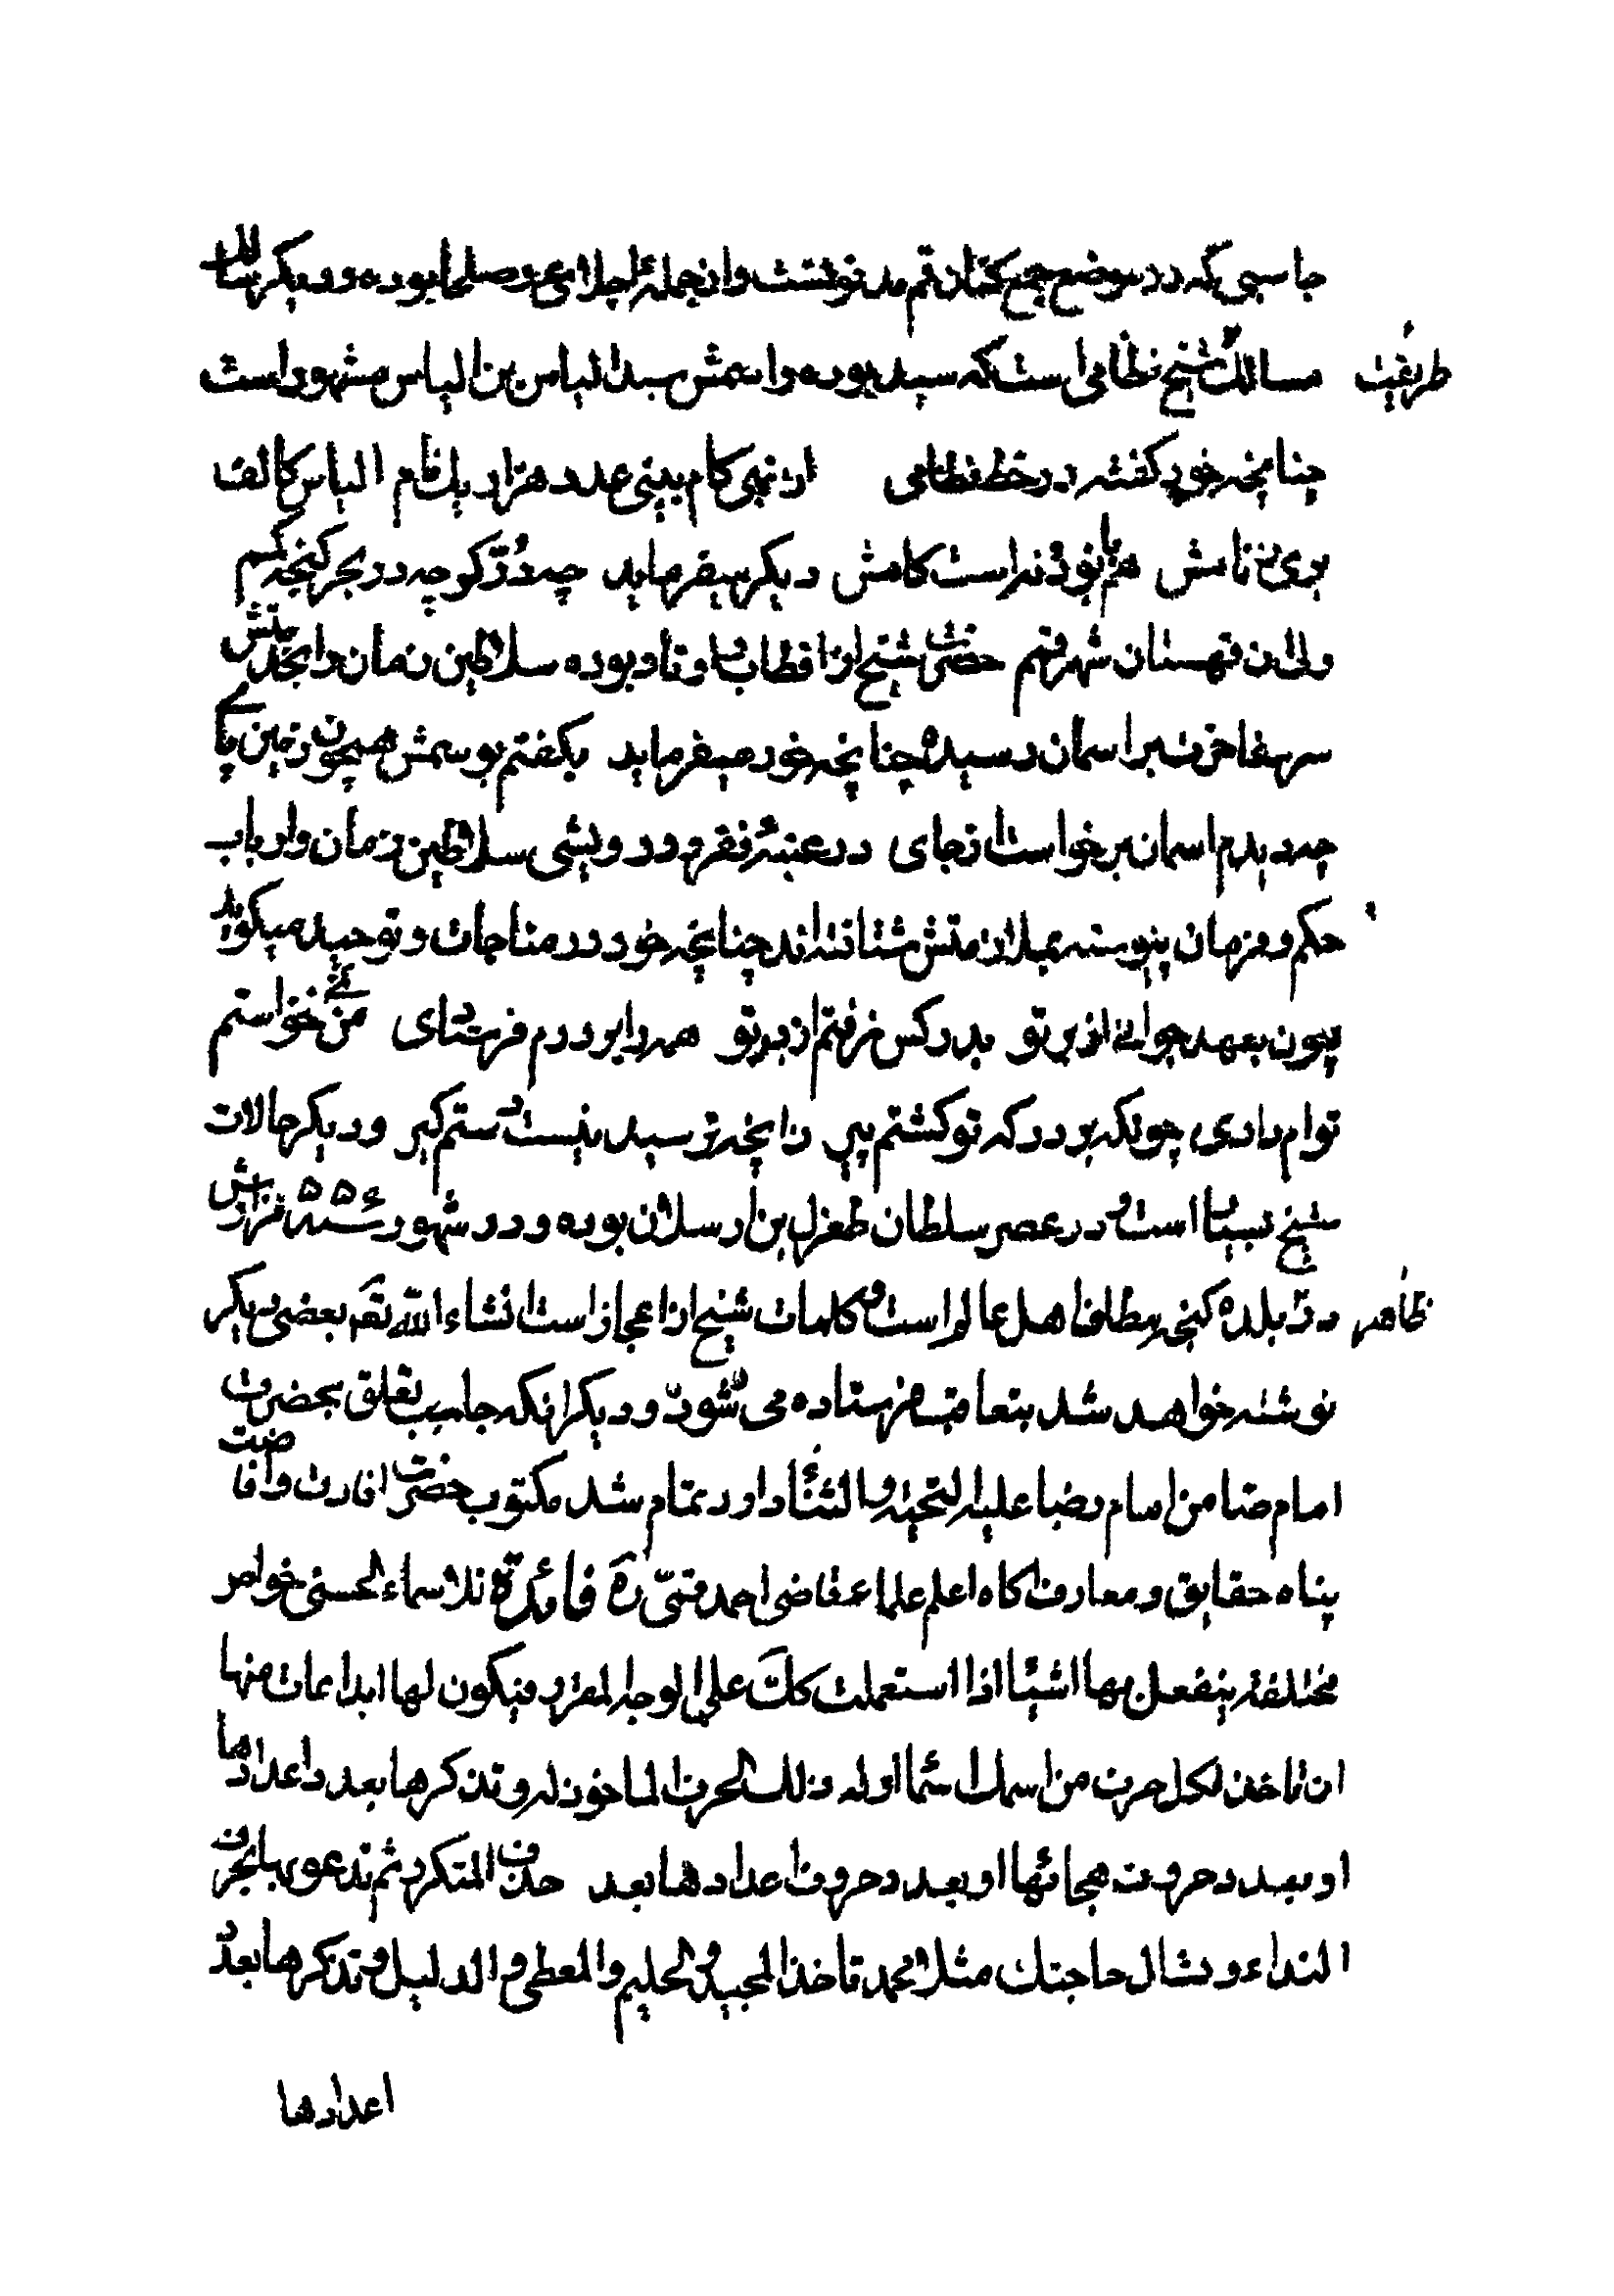 جاسبی که در موضع جمع کنان قم می نوشت و از جمله اجلای عرصلحا بوده و دیگر سالک
مسالک طریقت شیخ نظامی است که سید بوده و اسمش سید الیاس بن الیاس مشهور است
چنانچه خود گفته در خط نظامی ار نهی کام بینی عدد هزار یک نام الیاس کالف
بری ز نامش هم با نود نه است کامش دیگر میفرماید چه در کوچه در بحر گنجه گمم
ولی از قهستان شهر قمم حضرت شیخ از اقطاب و اوتاد بوده سلاطین زمان را بخدمتش
سر مفاخرت بر اسمان رسیده چنانچه خود میفرماید بگفتم بوسمش همچون زمین پای
چه دیدم اسمان برخواست از جای در عتبه فقر و درویشی سلاطین زمان و ارباب
حکم و فرمان پیوسته بملازمتش شتافته اند چنانچه خود در مناجات و توحید میگوید
چون بعهد جوانی از بر تو بدر کس نرفتم از در تو همه را بر درم فرستادی من نمی خواستم
توام دادی چونکه بر درگه تو گشتم پیر زانچه ترسیدنیست دستم گیر و دیگر حالات
شیخ بسیار است و در عصر سلطان طغرل بن ارسلان بوده و در شهور سنه ۵۵۴ مزارش
در ظاهر بلده گنجه مطاف اهل عالم است و کلمات شیخ از اعجاز است انشاء الله تعه بعضی دیگر
نوشته خواهد شد متعاقب فرستاده می شود و دیگر انکه جاسب تعلق بحضرت
امام ضامن امام رضا علیه التحیه و الثناء دارد تمام شد مکتوب حضرت افادت و افاضت
پناه حقایق و معارف اگاه اعلم علما قاضی احمد قمی ره فائدة للاسماء الحسنی خواص
مختلفة ینفعل بها اشیاء اذا استعملت کک علی الوجه المقرر فیکون لها ابدا عمات منها
ان تاخذ لکل حرف من اسمک اسما اوله ذلک الحرف الماخوذ له و تذکرها بعدد اعدادها
او بعدد حروف هجائها او بعدد حروف اعدادها بعد حذف المتکرر ثم تدعو بها بحرف
النداء و تسال حاجتک مثلا محمد تاخذ المجید و الحلیم و المعطی و الدلیل و تذکرها بعدد
اعدادها